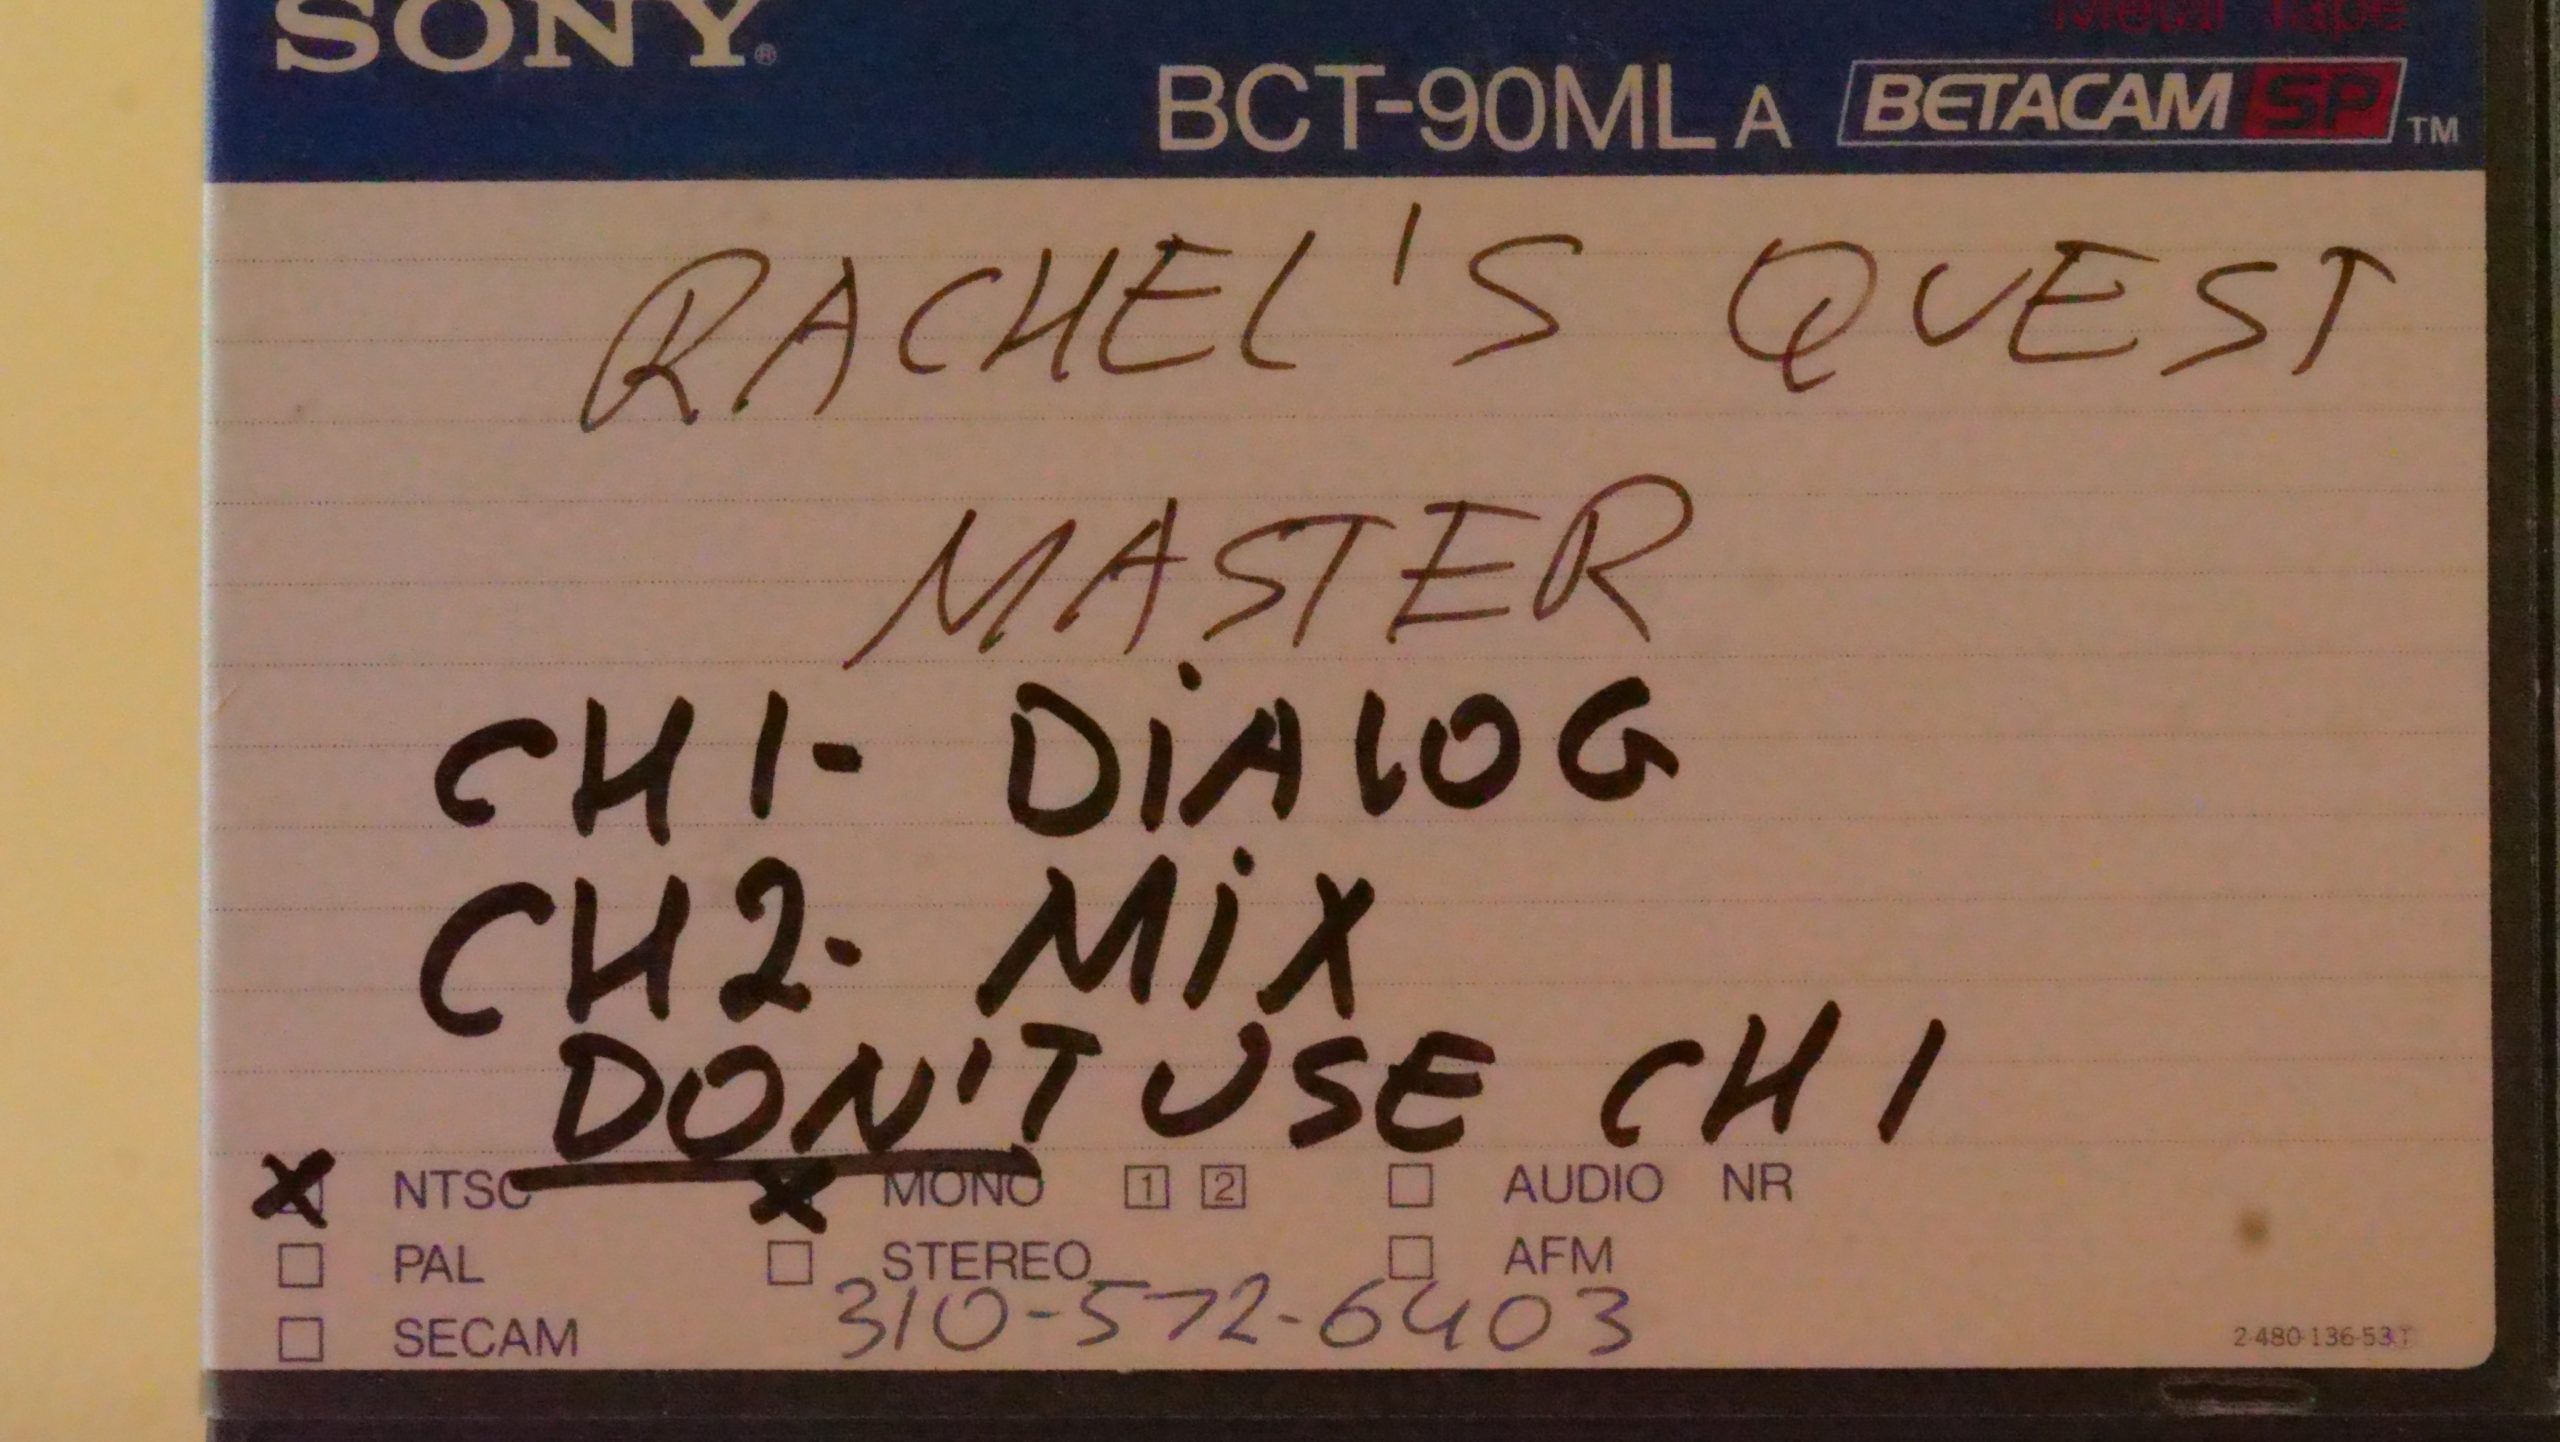 SONY®
Metal Tape
BCT-90MLA BETACAM SP TM
RACHEL'S QUEST
MASTER
CH 1- DiALOG
CH 2- MiX
DON'T USE CH 1
NTSC MONO 1 2 AUDIO NR
PAL STEREO AFM
SECAM 310-572-6403
2-480-136-53T